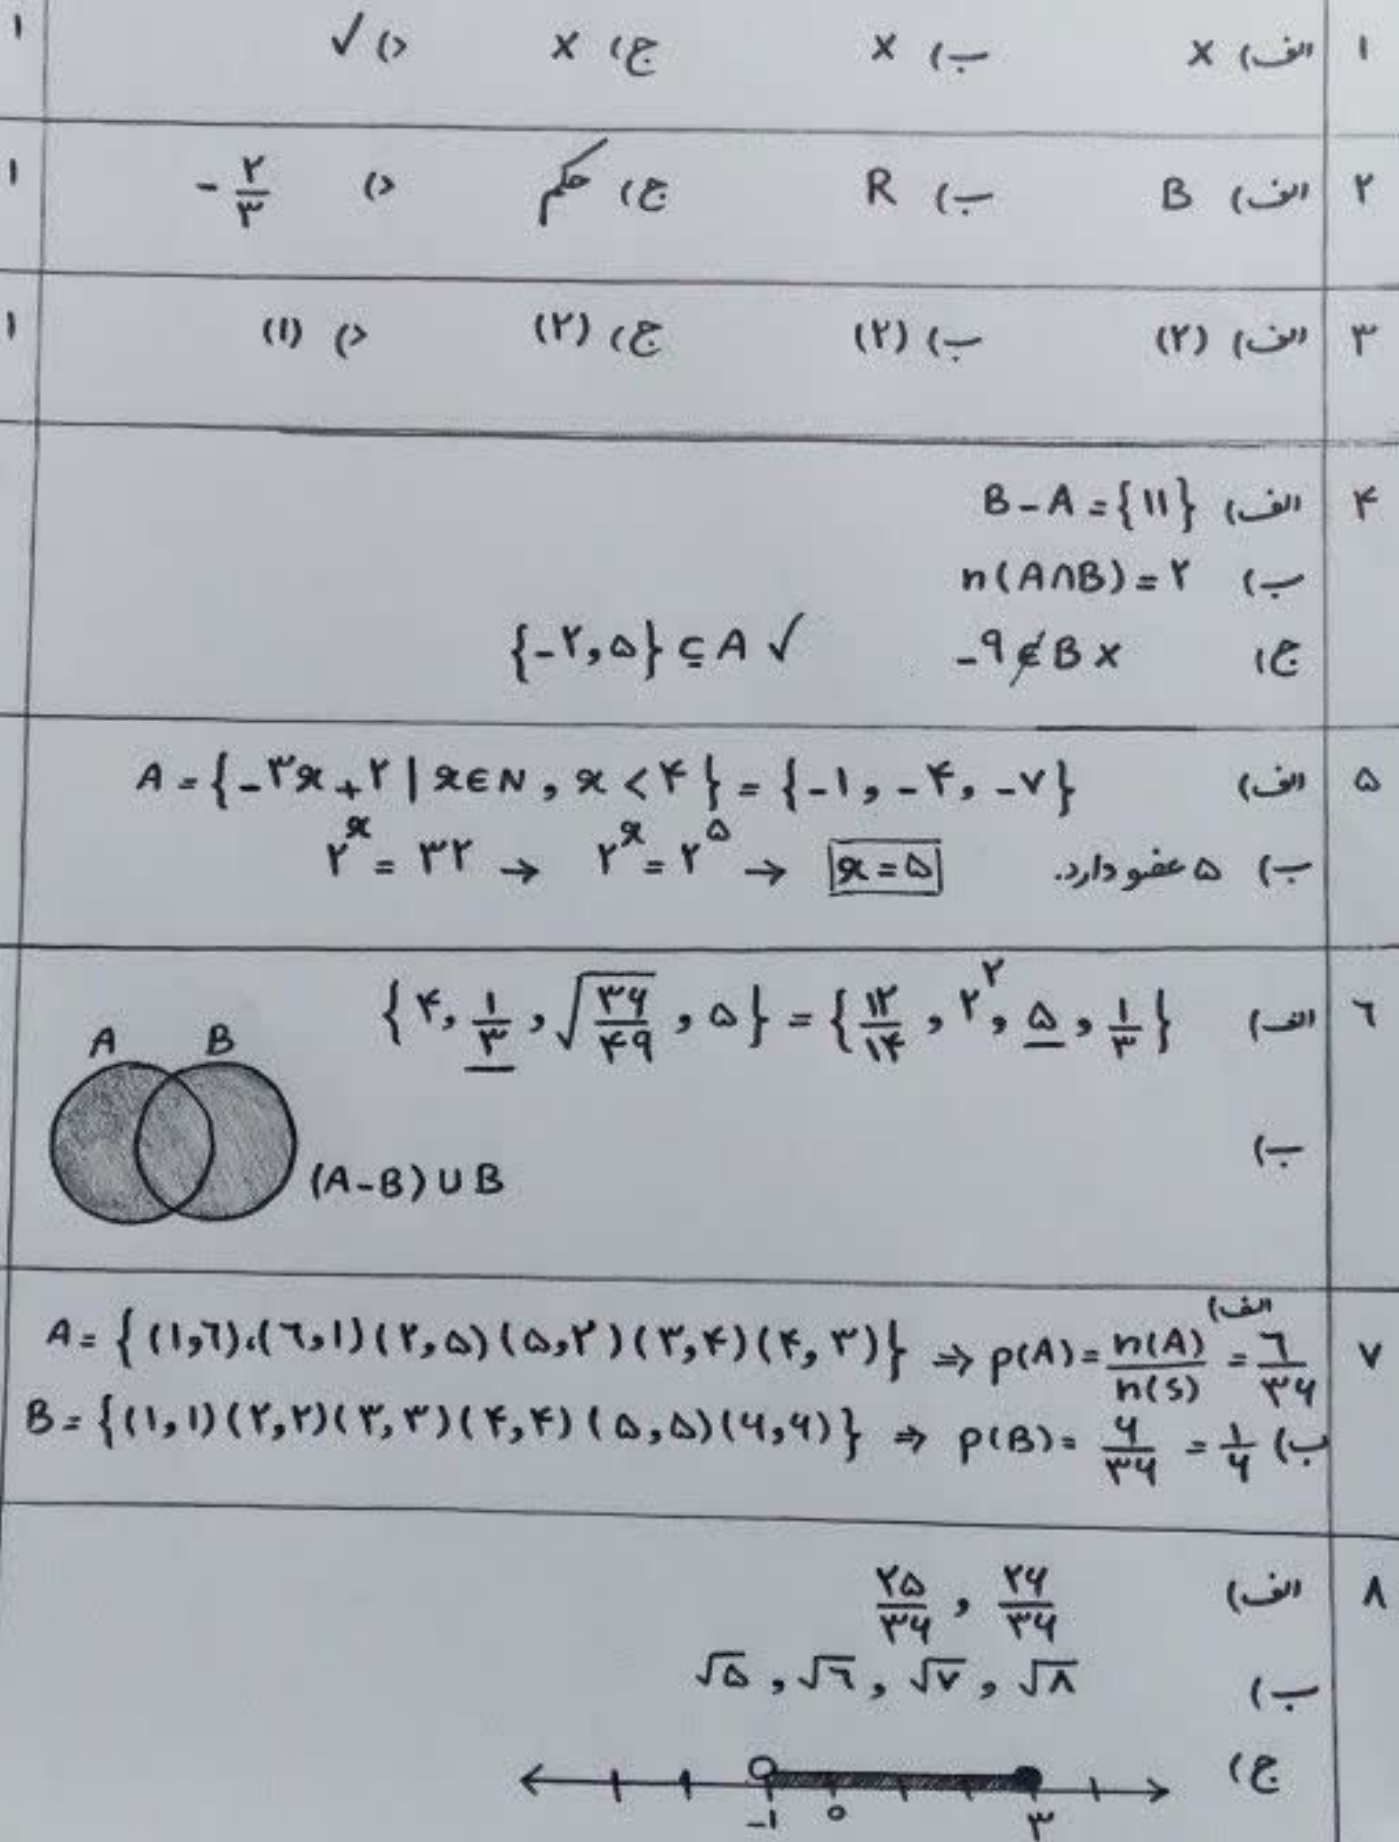 ۱ الف) × ب) × ج) × د) ✓ ۱
۲ الف) B ب) R ج) حکم د) -۲/۳ ۱
۳ الف) (۲) ب) (۲) ج) (۲) د) (۱) ۱
۴ الف) B-A={۱۱}
ب) n(A∩B)=۲
ج) -۹∉B × {-۲,۵}⊆A ✓
۵ الف) A={-۳x+۲|x∈N, x<۴}={-۱,-۴,-۷}
ب) ۵ عضو دارد. ۲^x=۳۲ → ۲^x=۲^۵ → x=۵
۶ الف) {۴, ۱/۳, √(۳۶/۴۹), ۵}={۱۲/۱۴, ۲^۲, ۵, ۱/۳}
ب) A B (A-B)∪B
۷ الف) A={(۱,۶),(۶,۱)(۲,۵)(۵,۲)(۳,۴)(۴,۳)} ⇒ p(A)=n(A)/n(S)=۶/۳۶
ب) B={(۱,۱)(۲,۲)(۳,۳)(۴,۴)(۵,۵)(۶,۶)} ⇒ p(B)=۶/۳۶=۱/۶
۸ الف) ۲۵/۳۶ , ۲۶/۳۶
ب) √۵, √۶, √۷, √۸
ج) -۱ ۰ ۳